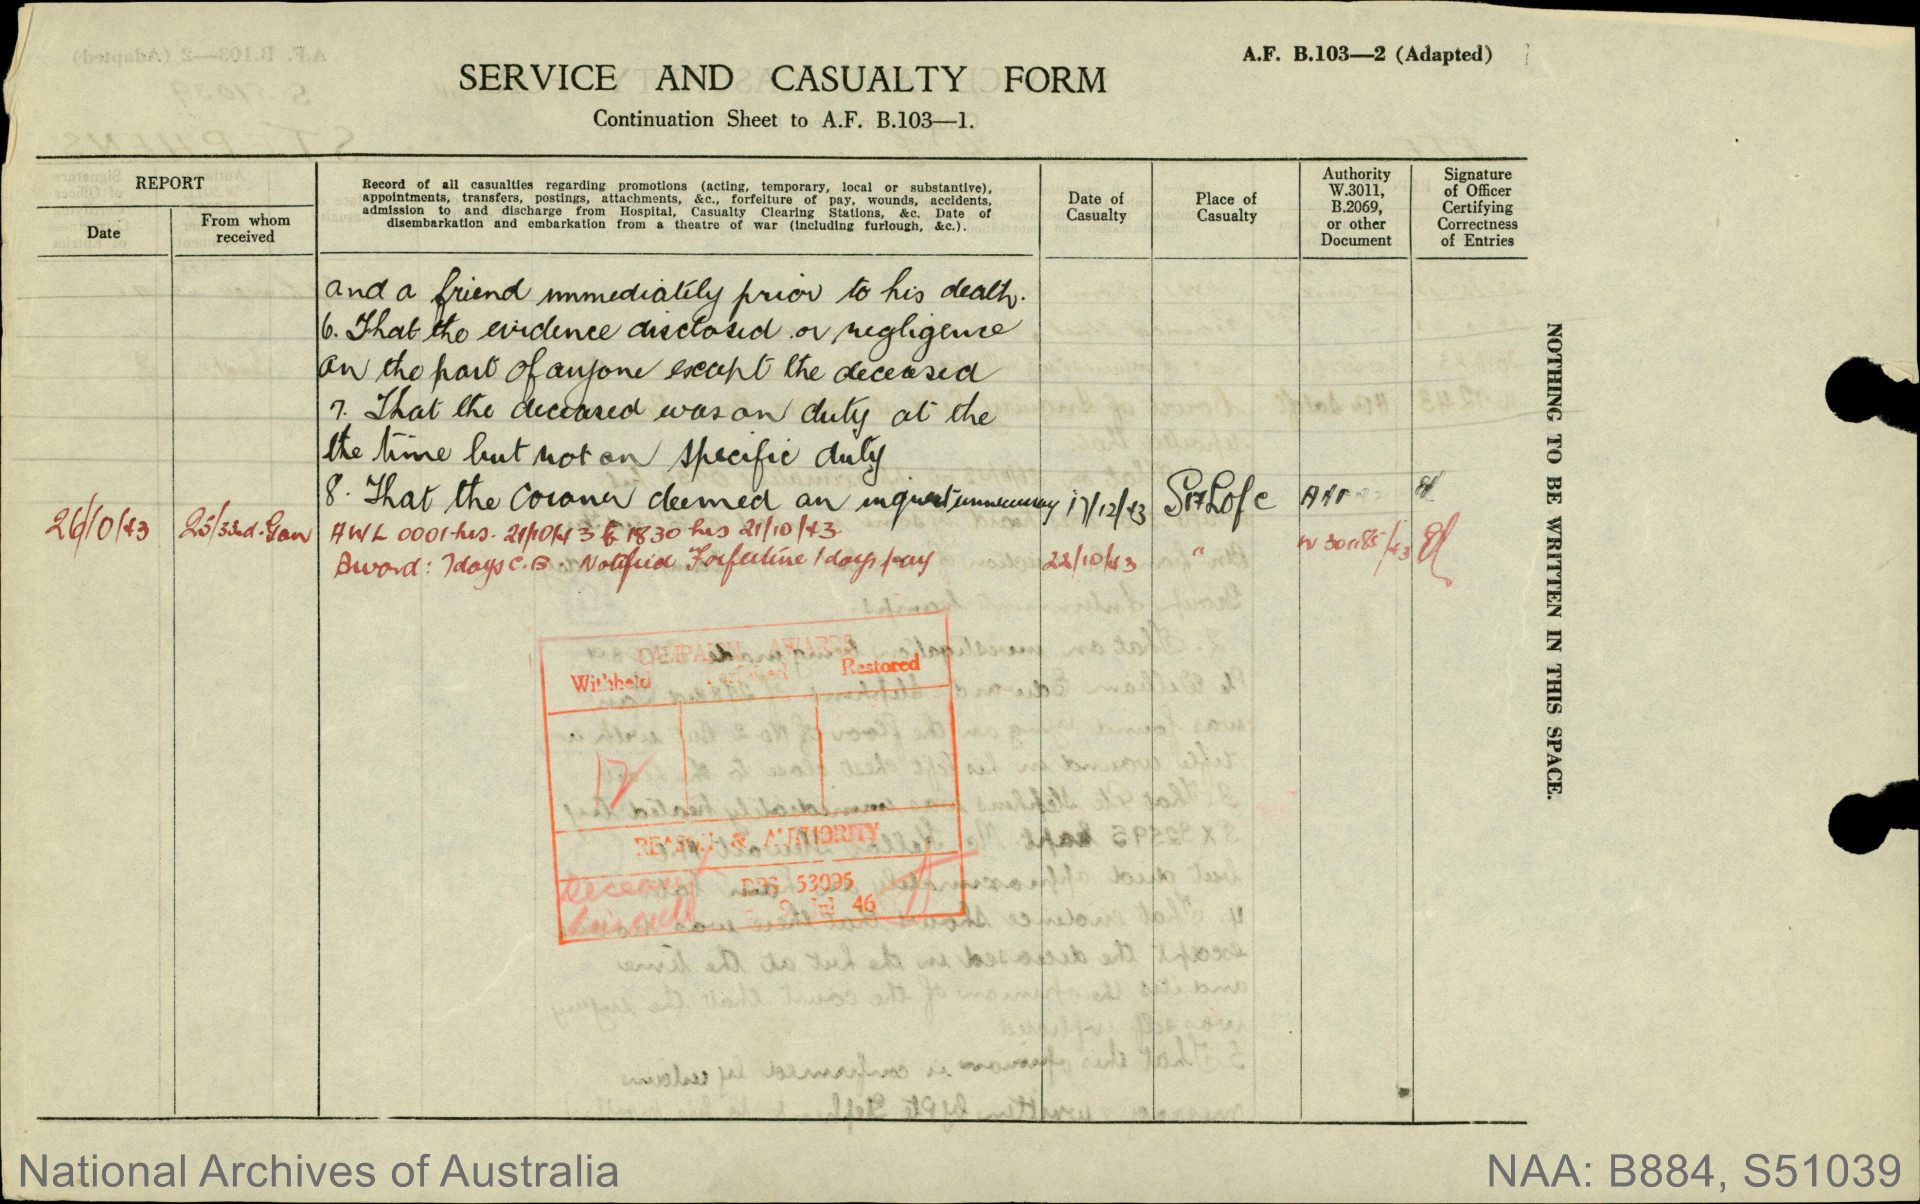 A.F. B.103—2 (Adapted)
SERVICE AND CASUALTY FORM
Continuation Sheet to A.F. B.103—1.
REPORT
Date
From whom
received
Record of all casualties regarding promotions (acting, temporary, local or substantive),
appointments, transfers, postings, attachments, &c., forfeiture of pay, wounds, accidents,
admission to and discharge from Hospital, Casualty Clearing Stations, &c. Date of
disembarkation and embarkation from a theatre of war (including furlough, &c.).
Date of
Casualty
Place of
Casualty
Authority
W.3011,
B.2069,
or other
Document
Signature
of Officer
Certifying
Correctness
of Entries
and a friend immediately prior to his death.
6. That the evidence disclosed or negligence
on the part of anyone except the deceased
7. That the deceased was on duty at the
the time but not on specific duty
8. That the Coroner deemed an inquest unnecessary 17/12/43
26/10/43 25/33rd. Gan AWL 0001 hrs. 21/10/43 to 1830 hrs 21/10/43
Award: 7 days C.B. Notified Forfeiture 1 days pay 22/10/43 "
CAMPAIGN AWARDS
Withheld Restored
17
REASON & AUTHORITY
53095
Jul 46
NOTHING TO BE WRITTEN IN THIS SPACE.
National Archives of Australia
NAA: B884, S51039